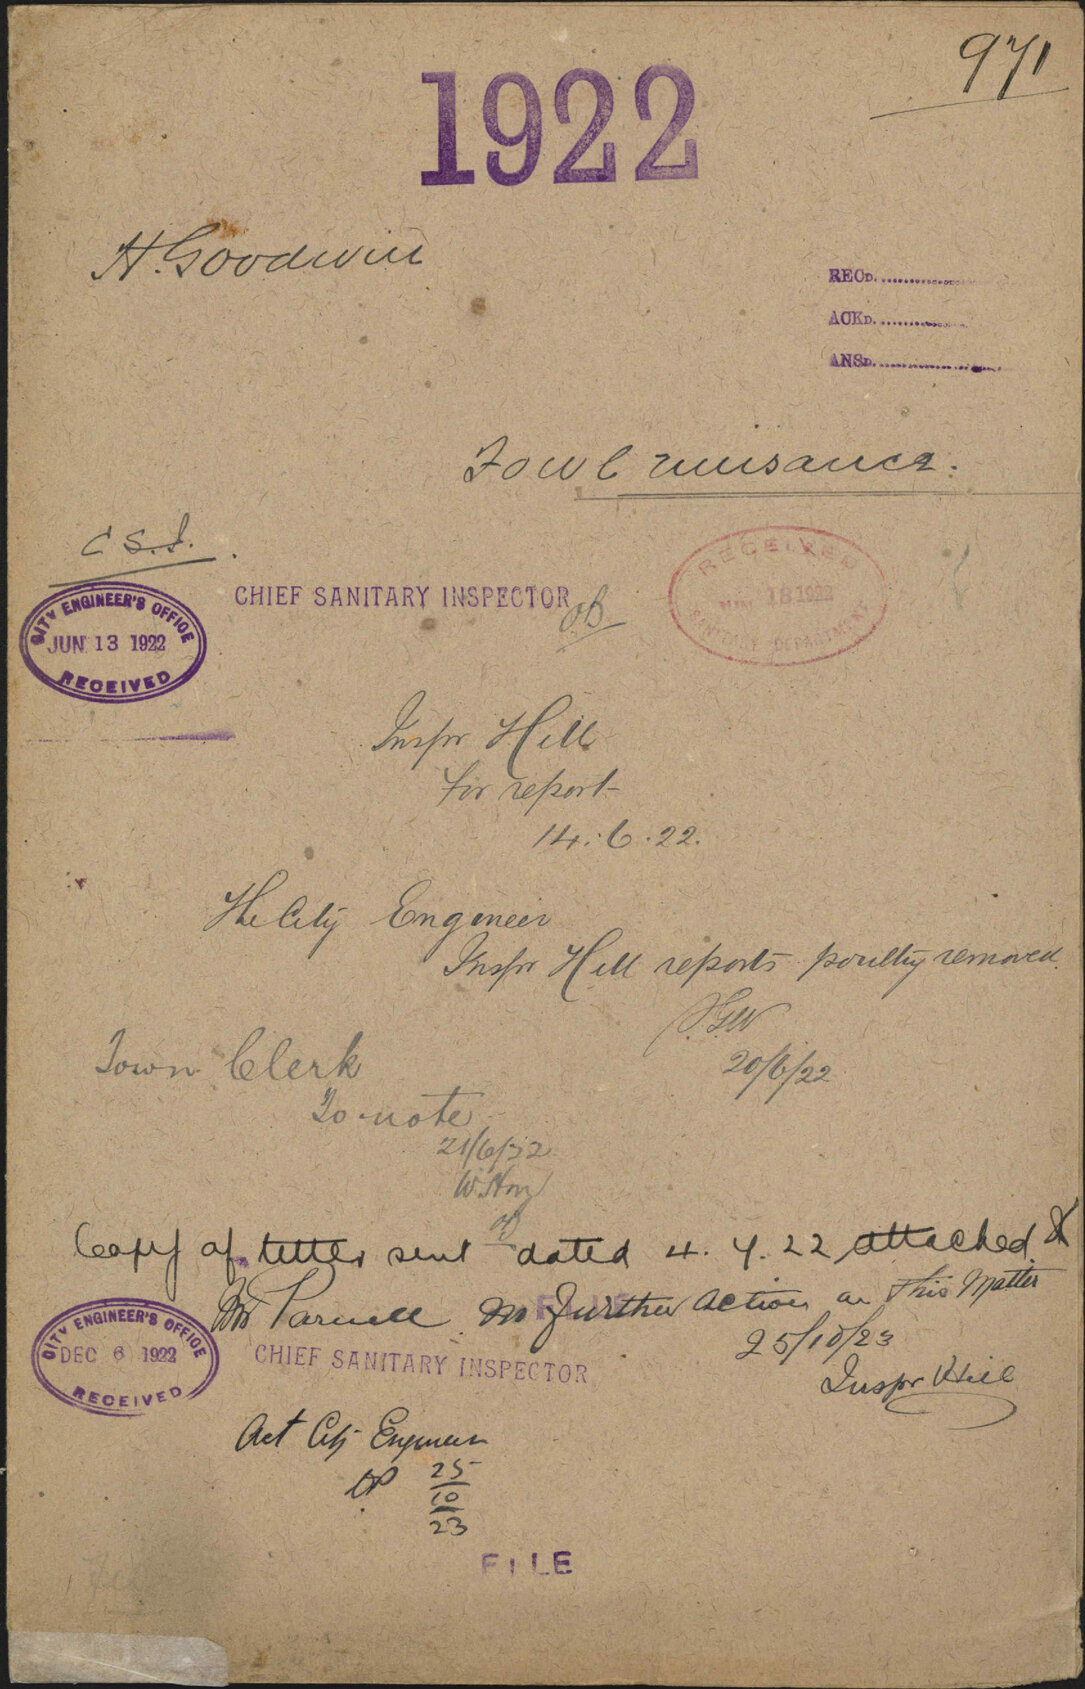 971
1922
H. Goodwin
RECD.
ACKD.
ANSD.
Fowl nuisance.
C S. I.
CITY ENGINEER'S OFFICE
JUN 13 1922
RECEIVED
CHIEF SANITARY INSPECTOR
RECEIVED
18 1922
SANITARY DEPARTMENT
Inspr Hill
for report
14.6.22.
The City Engineer
Inspr Hill reports poultry removed.
20/6/22
Town Clerk
To note
21/6/22
Copy of letter sent dated 4.7.22 attached
Mr Parnell no further action on this Matter
25/10/23
Inspr Hill
CITY ENGINEER'S OFFICE
DEC 6 1922
RECEIVED
CHIEF SANITARY INSPECTOR
Act City Engineer
25
10
23
FILE